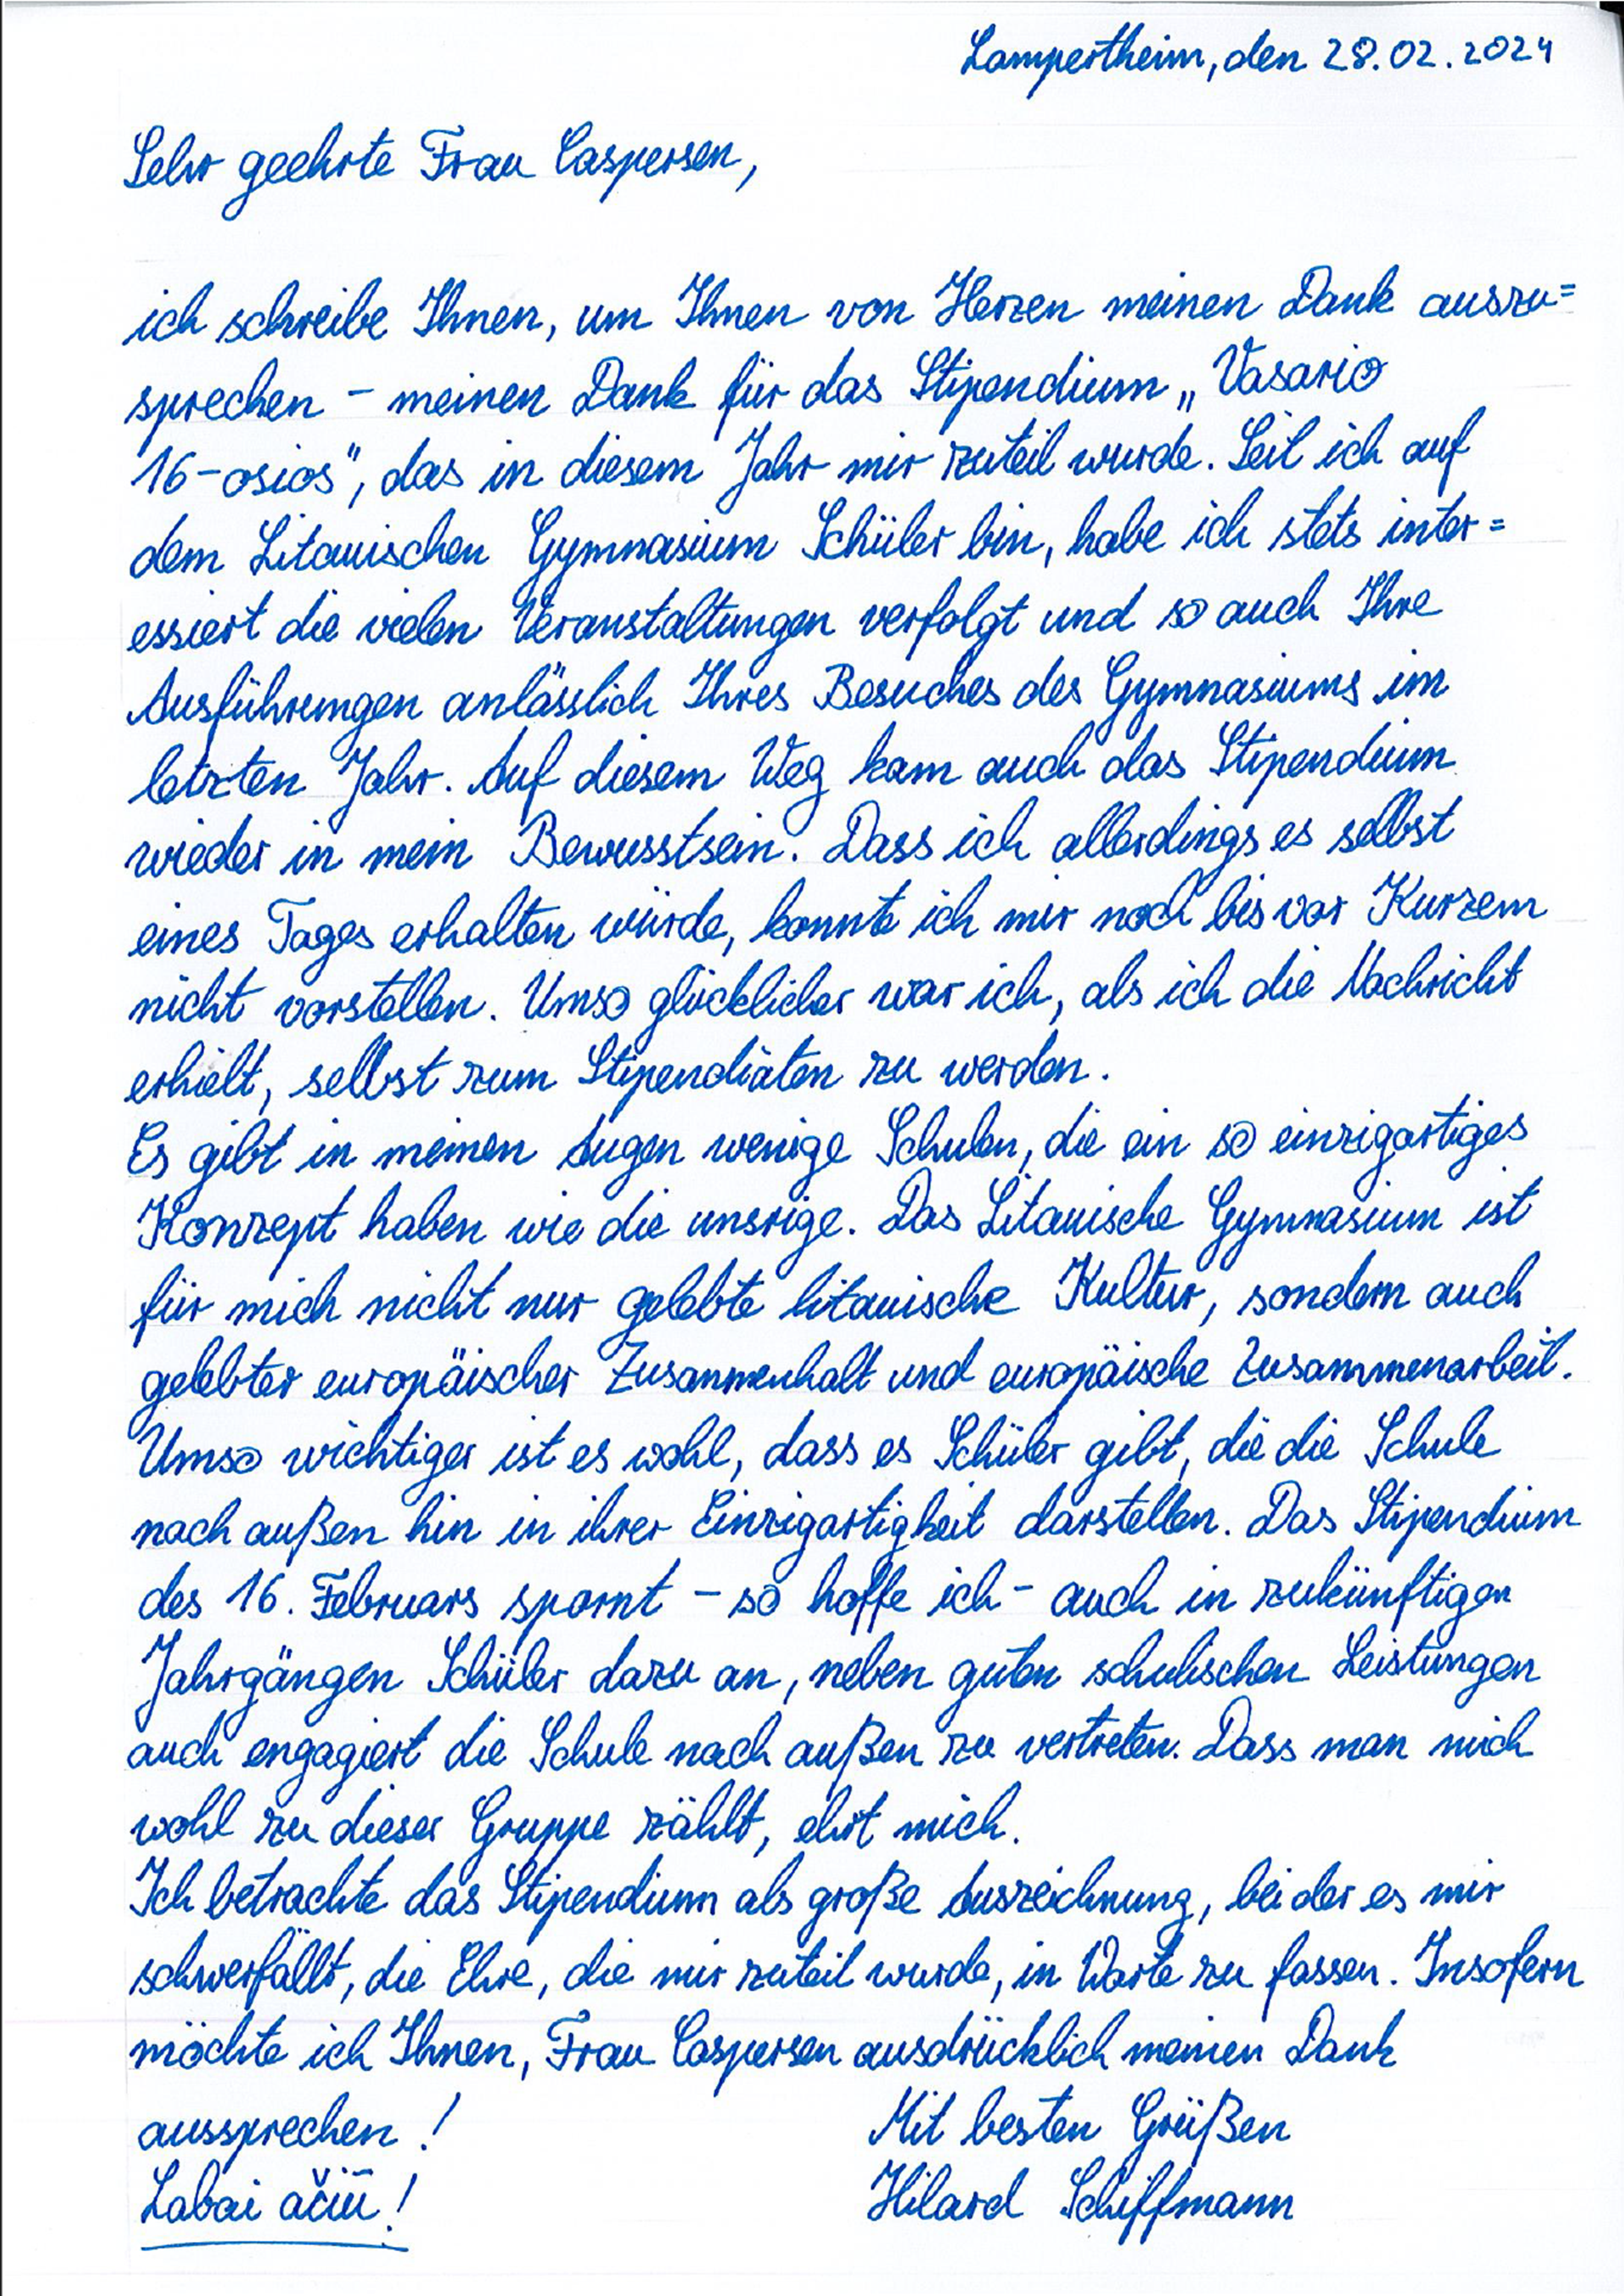 Lampertheim, den 28.02.2024
Sehr geehrte Frau Caspersen,
ich schreibe Ihnen, um Ihnen von Herzen meinen Dank auszu=
sprechen – meinen Dank für das Stipendium „Vasario
16-osios“, das in diesem Jahr mir zuteil wurde. Seit ich auf
dem Litauischen Gymnasium Schüler bin, habe ich stets inter=
essiert die vielen Veranstaltungen verfolgt und so auch Ihre
Ausführungen anlässlich Ihres Besuches des Gymnasiums im
letzten Jahr. Auf diesem Weg kam auch das Stipendium
wieder in mein Bewusstsein. Dass ich allerdings es selbst
eines Tages erhalten würde, konnte ich mir noch bis vor Kurzem
nicht vorstellen. Umso glücklicher war ich, als ich die Nachricht
erhielt, selbst zum Stipendiaten zu werden.
Es gibt in meinen Augen wenige Schulen, die ein so einzigartiges
Konzept haben wie die unsrige. Das Litauische Gymnasium ist
für mich nicht nur gelebte litauische Kultur, sondern auch
gelebter europäischer Zusammenhalt und europäische Zusammenarbeit.
Umso wichtiger ist es wohl, dass es Schüler gibt, die die Schule
nach außen hin in ihrer Einzigartigkeit darstellen. Das Stipendium
des 16. Februars spornt – so hoffe ich – auch in zukünftigen
Jahrgängen Schüler dazu an, neben guten schulischen Leistungen
auch engagiert die Schule nach außen zu vertreten. Dass man mich
wohl zu dieser Gruppe zählt, ehrt mich.
Ich betrachte das Stipendium als große Auszeichnung, bei der es mir
schwerfällt, die Ehre, die mir zuteil wurde, in Worte zu fassen. Insofern
möchte ich Ihnen, Frau Caspersen ausdrücklich meinen Dank
aussprechen!
Mit besten Grüßen
Labai ačiū!
Hilard Schiffmann